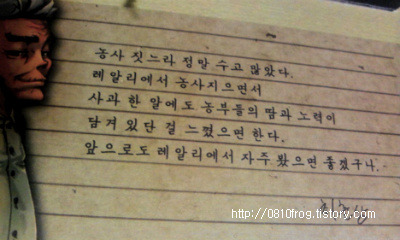 농사 짓느라 정말 수고 많았다.
레알리에서 농사지으면서
사과 한 알에도 농부들의 땀과 노력이
담겨 있단 걸 느꼈으면 한다.
앞으로도 레알리에서 자주 봤으면 좋겠구나.
http://0810frog.tistory.com/